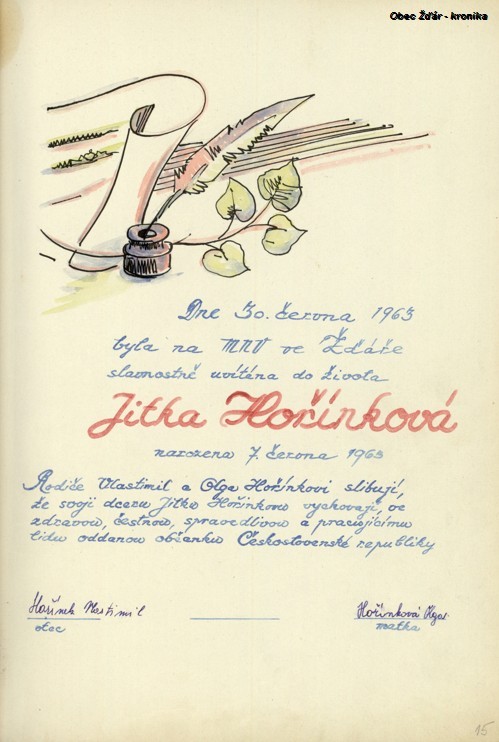 Obec Žďár - kronika
Dne 30. června 1963
byla na MNV ve Žďáře
slavnostně uvítána do života
Jitka Hořínková
narozena 7. června 1963
Rodiče Vlastimil a Olga Hořínkovi slibují,
že svoji dceru Jitku Hořínkovu vychovají, ve
zdravou, čestnou, spravedlivou a pracujícímu
lidu oddanou občanku Československé republiky
Hořínek Vlastimil
Hořínková Olga
otec
matka
15